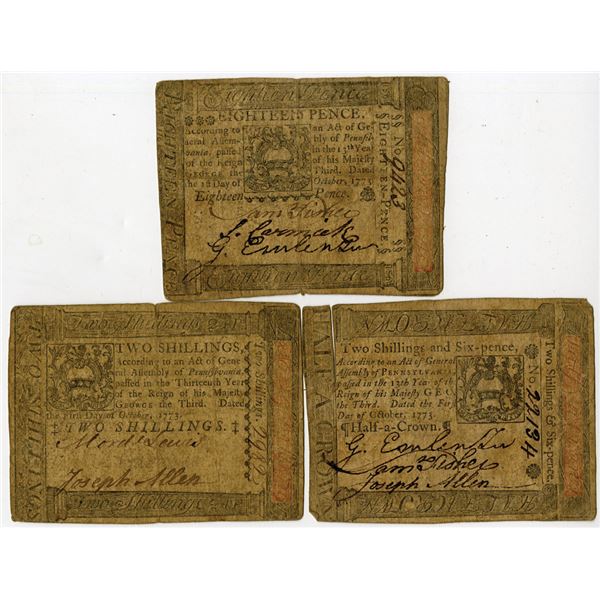 Eighteen Pence
EIGHTEEN PENCE.
According to an Act of Ge-
neral Assem- bly of Pennsyl-
vania, passed in the 13th Year
of the Reign of his Majesty
GEORGE the Third. Dated
the 1st Day of October, 1773.
Eighteen Pence.
Sam Fisher
S. Cormick
G. Emlen Jur
Eighteen Pence
EIGHTEEN PENCE
No. 9423
EIGHTEEN PENCE.
Two Shillings
TWO SHILLINGS,
According to an Act of Gene-
ral Assembly of Pennsylvania,
passed in the Thirteenth Year
of the Reign of his Majesty
GEORGE the Third. Dated
the First Day of October, 1773.
TWO SHILLINGS.
Mord Lewis
Joseph Allen
Two Shillings
TWO SHILLINGS
Two Shillings.
Two Shillings and Six-pence,
According to an Act of General
Assembly of PENNSYLVANIA,
passed in the 13th Year of the
Reign of his Majesty GEO.
the Third. Dated the First
Day of October, 1773.
Half-a-Crown.
G. Emlen Jur
Sam Fisher
Joseph Allen
HALF A CROWN
No. 22134
Two Shillings & Six-pence.